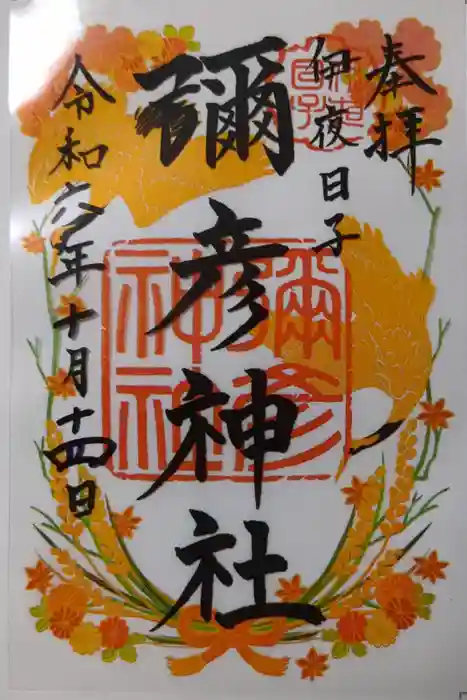 奉拝
伊夜日子
彌彦神社
令和六年十月十四日
彌彦神社